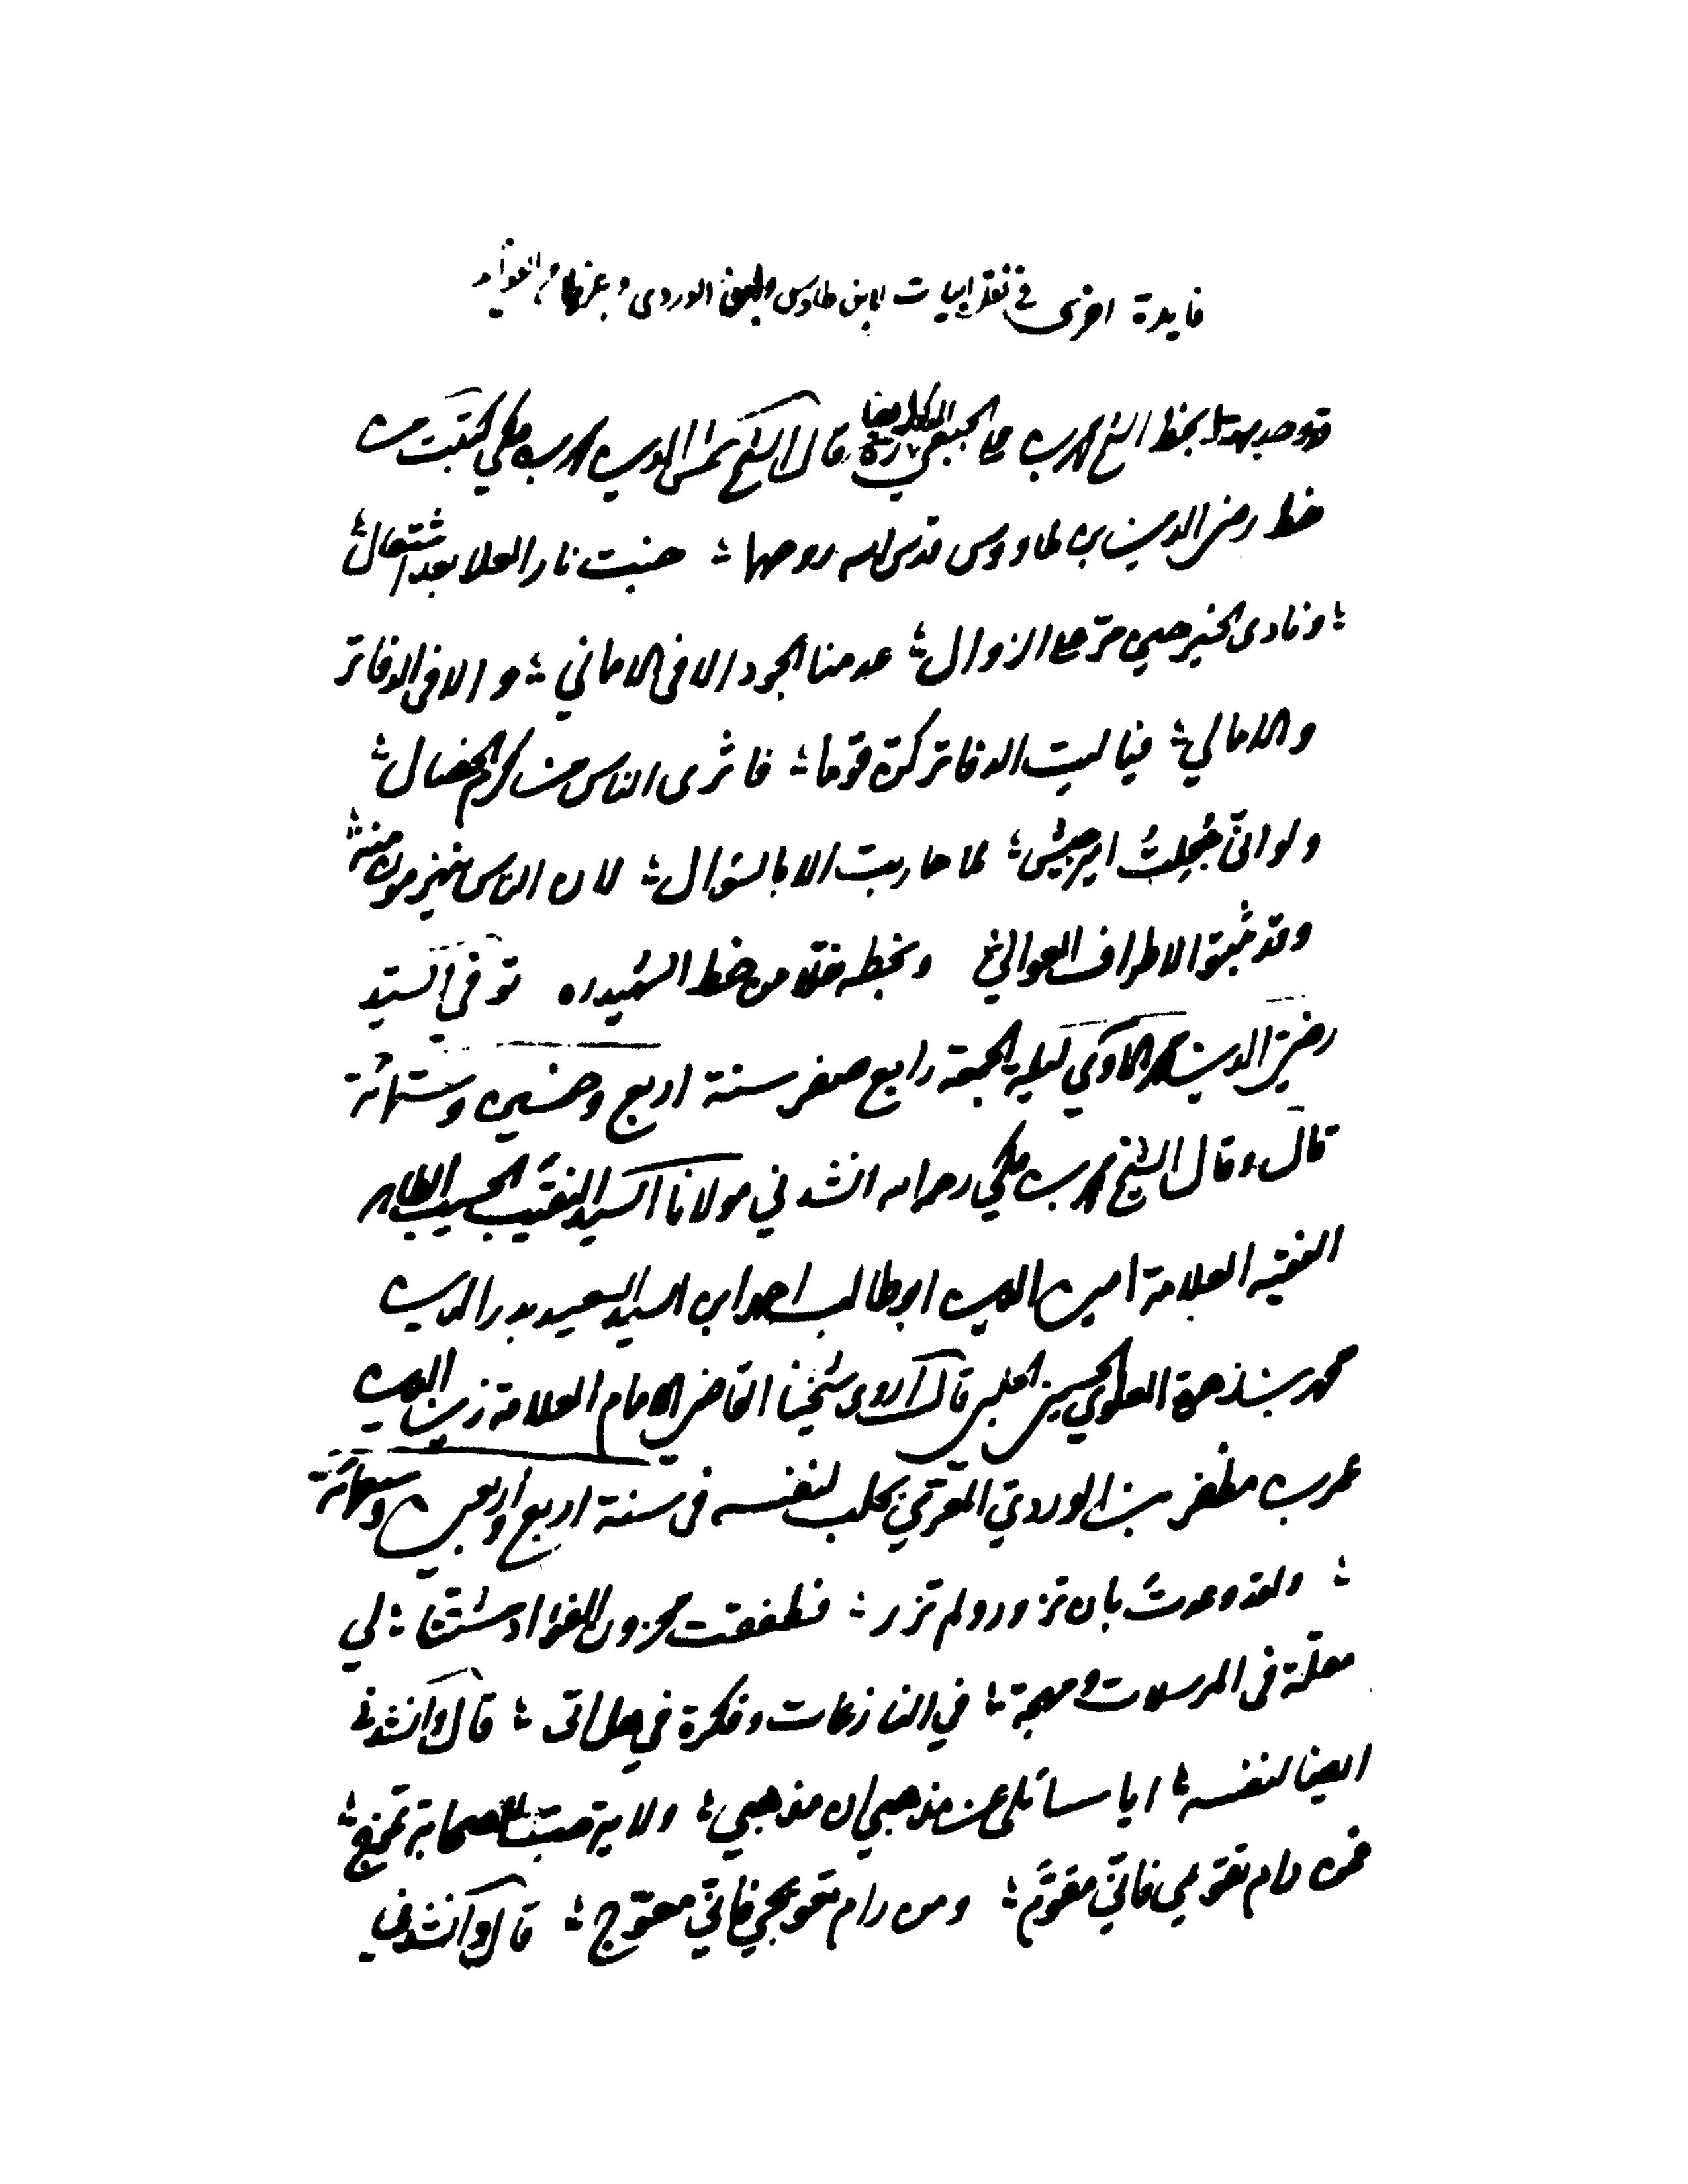 فايدة اخرى في نقل ابيات لابن طاوس ولابن الوردي وغيرها من الفوايد
قد وجدت بخط الشيخ محمد بن علي الجبعي قال الشيخ شمس الدين محمد بن مكي كتبت من
خط رضي الدين بن طاووس قدس الله روحهما ؛ خبت نار العلا بعد اشتعال ؛
؛ ونادى الخير حي على الزوال ؛ عدمنا الجود الا في الاماني ؛ و الا في الدفاتر
والامالي ؛ فيا ليت الدفاتر كنّ قوما ؛ فاثرى الناس من كرم الخصال ؛
ولو انّي جُعِلتُ امير جيش ؛ لما حاربت الا بالسؤال ؛ لان الناس ينهزمون منه ؛
وقد ثبتوا لاطراف العوالي وبخطه نقلا من خط الشهيد ره توفي السيد
رضي الدين محمد الاوي ليلة الجمعة رابع صفر سنة اربع وخمسين وستمائة
قال وقال الشيخ محمد بن مكي رحمه الله انشدني مولانا السيد النقيب الحسيب الطاهر
الفقيه العلامة امين الدين ابو طالب احمد ابن السيد السعيد بدر الدين
محمد بن زهرة العلوي الحسيني الحلبي قال اروى شيخنا القاضي الامام العلامة زين الدين
عمر بن مظفر بن الوردي المعري بحلب لنفسه في سنة اربع واربعين وسبعمائة
؛ ولقد وعدت بان تزور ولم تزر ؛ فطفقت محزون الفؤاد مشتتا ؛ لي
مقلة في المرسلات ومهجة ؛ في النازعات وفكرة في هل اتى ؛ قال وانشدني
ايضا لنفسه ؛ ايا سائلي عن مذهبي ان مذهبي ؛ ولاية حبّ للصحابة تمزج ؛
فمن رام تقويمي فانّي مقوّم ؛ ومن رام تعويجي فانّي معوّج ؛ قال وانشدني